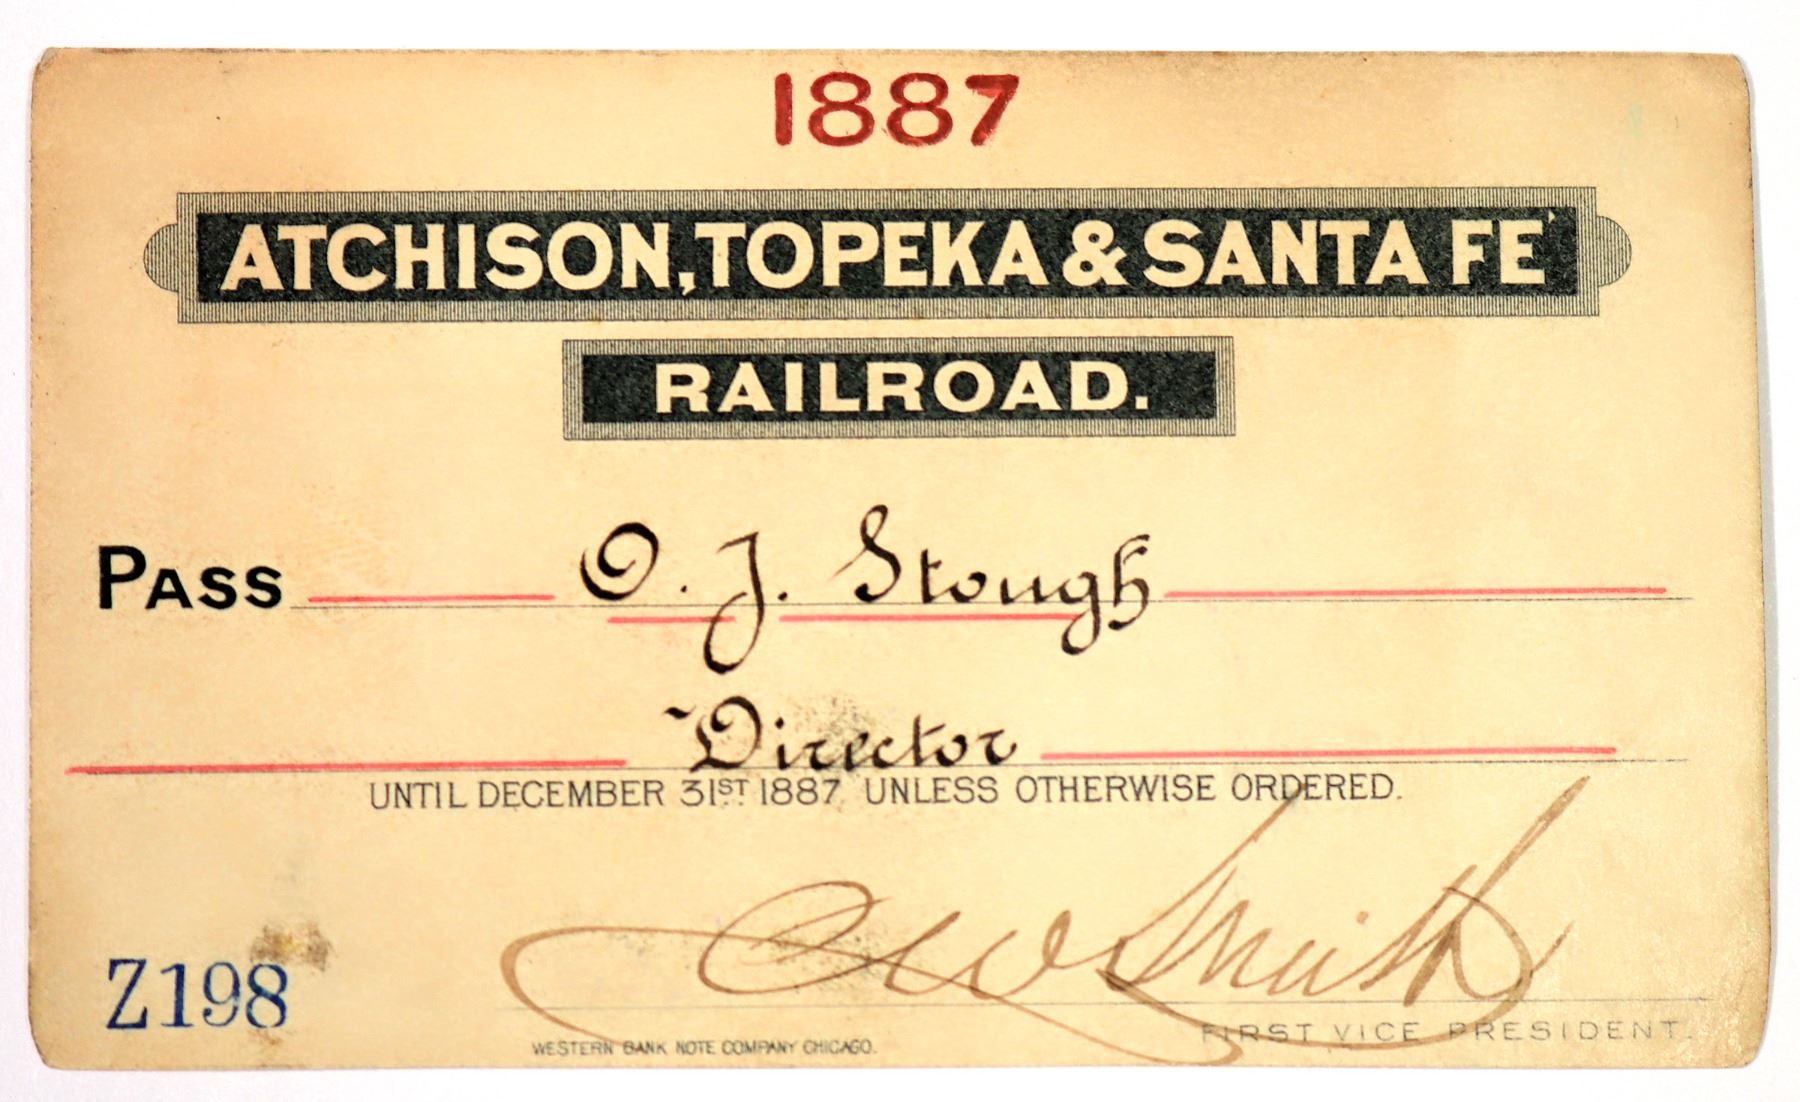 1887
ATCHISON, TOPEKA & SANTA FÉ
RAILROAD.
PASS O. J. Stough
Director
UNTIL DECEMBER 31ST 1887 UNLESS OTHERWISE ORDERED.
C W Smith
Z198
FIRST VICE PRESIDENT.
WESTERN BANK NOTE COMPANY CHICAGO.